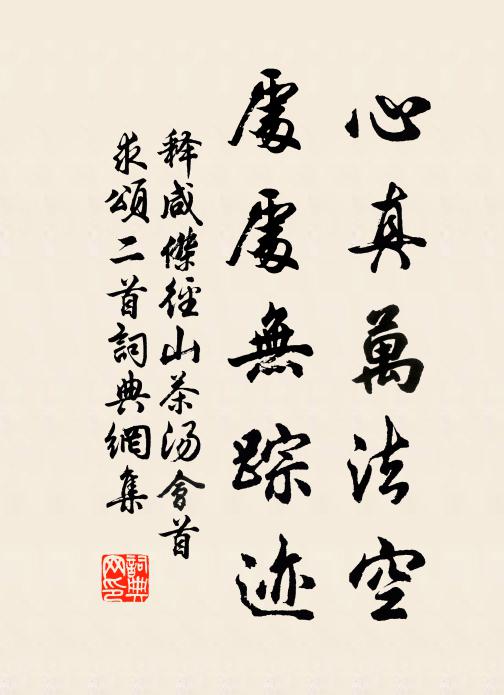 心真萬法空
處處無踪迹
释咸傑徑山茶汤會首
求頌二首詞典網集
詞典网印